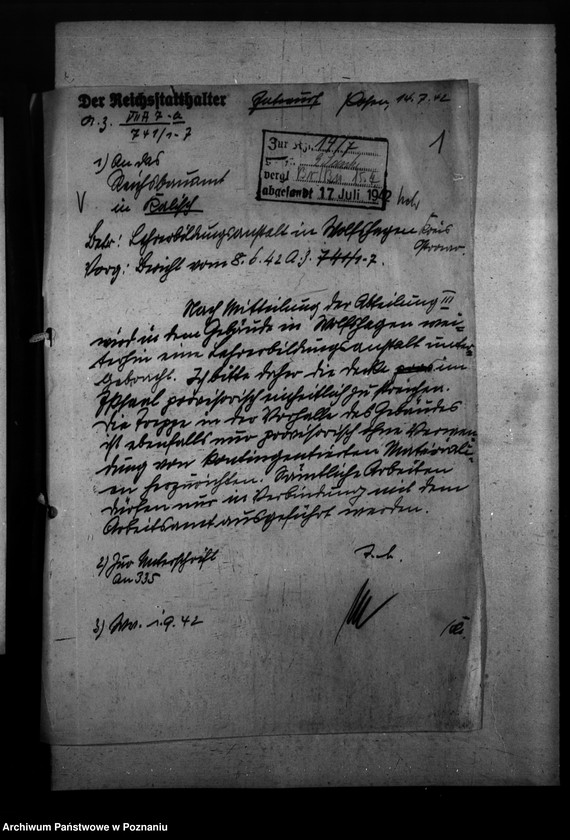 Der Reichsstatthalter Entwurf Posen, 14.7.42
A.Z. VII A 7-a
741/1-7
1
Zur Kzl. 14/7
vergl
abgesandt 17. Juli 1942
1) An das
Reichsbauamt
in Kalisch
Betr: Lehrerbildungsanstalt in Wolfshagen Kreis
Ostrowo.
Vorg: Bericht vom 8.6.42 A.Z. 741/1-7.
Nach Mitteilung der Abteilung III
wird in dem Gebäude in Wolfshagen wei-
terhin eine Lehrerbildungsanstalt unter-
gebracht. Ich bitte daher die Decke im
Eßsaal provisorisch einheitlich zu streichen.
Die Treppe in der Vorhalle des Gebäudes
ist ebenfalls nur provisorisch ohne Verwen-
dung von kontingentierten Materiali-
en herzurichten. Sämtliche Arbeiten
dürfen nur in Verbindung mit dem
Arbeitsamt ausgeführt werden.
2) Zur Unterschrift I.A.
An 335
3) Wv. 1.9.42
Archiwum Państwowe w Poznaniu